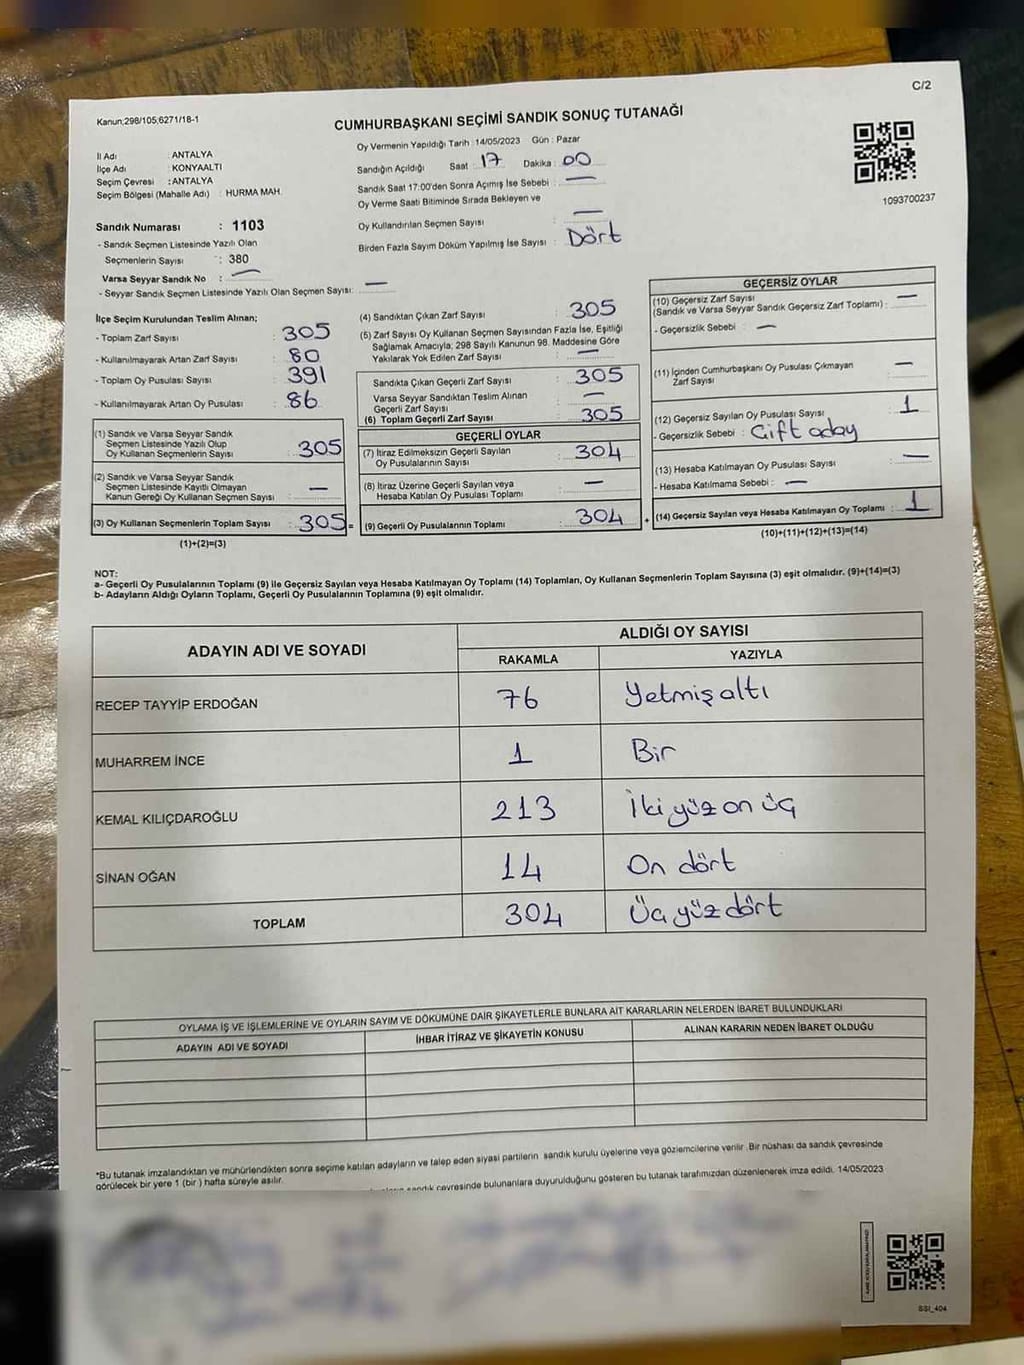 C/2
Kanun;298/105;6271/18-1
CUMHURBAŞKANI SEÇİMİ SANDIK SONUÇ TUTANAĞI
İl Adı : ANTALYA
İlçe Adı : KONYAALTI
Seçim Çevresi : ANTALYA
Seçim Bölgesi (Mahalle Adı) : HURMA MAH.
Sandık Numarası : 1103
- Sandık Seçmen Listesinde Yazılı Olan
Seçmenlerin Sayısı : 380
Varsa Seyyar Sandık No : —
- Seyyar Sandık Seçmen Listesinde Yazılı Olan Seçmen Sayısı: —
Oy Vermenin Yapıldığı Tarih : 14/05/2023 Gün : Pazar
Sandığın Açıldığı Saat : 17 Dakika : 00
Sandık Saat 17:00'den Sonra Açımış İse Sebebi : —
Oy Verme Saati Bitiminde Sırada Bekleyen ve
Oy Kullandırılan Seçmen Sayısı : —
Birden Fazla Sayım Döküm Yapılmış İse Sayısı : Dört
1093700237
İlçe Seçim Kurulundan Teslim Alınan;
- Toplam Zarf Sayısı : 305
- Kullanılmayarak Artan Zarf Sayısı : 80
- Toplam Oy Pusulası Sayısı : 391
- Kullanılmayarak Artan Oy Pusulası : 86
(1) Sandık ve Varsa Seyyar Sandık
Seçmen Listesinde Yazılı Olup
Oy Kullanan Seçmenlerin Sayısı : 305
(2) Sandık ve Varsa Seyyar Sandık
Seçmen Listesinde Kayıtlı Olmayan
Kanun Gereği Oy Kullanan Seçmen Sayısı : —
(3) Oy Kullanan Seçmenlerin Toplam Sayısı : 305=
(1)+(2)=(3)
(4) Sandıktan Çıkan Zarf Sayısı : 305
(5) Zarf Sayısı Oy Kullanan Seçmen Sayısından Fazla İse, Eşitliği
Sağlamak Amacıyla; 298 Sayılı Kanunun 98. Maddesine Göre
Yakılarak Yok Edilen Zarf Sayısı : —
Sandıkta Çıkan Geçerli Zarf Sayısı : 305
Varsa Seyyar Sandıktan Teslim Alınan
Geçerli Zarf Sayısı : —
(6) Toplam Geçerli Zarf Sayısı : 305
GEÇERLİ OYLAR
(7) İtiraz Edilmeksizin Geçerli Sayılan
Oy Pusulalarının Sayısı : 304
(8) İtiraz Üzerine Geçerli Sayılan veya
Hesaba Katılan Oy Pusulası Toplamı : —
(9) Geçerli Oy Pusulalarının Toplamı : 304 +
GEÇERSİZ OYLAR
(10) Geçersiz Zarf Sayısı
(Sandık ve Varsa Seyyar Sandık Geçersiz Zarf Toplamı) : —
- Geçersizlik Sebebi : —
(11) İçinden Cumhurbaşkanı Oy Pusulası Çıkmayan
Zarf Sayısı : —
(12) Geçersiz Sayılan Oy Pusulası Sayısı : 1
- Geçersizlik Sebebi : Çift aday
(13) Hesaba Katılmayan Oy Pusulası Sayısı : —
- Hesaba Katılmama Sebebi : —
(14) Geçersiz Sayılan veya Hesaba Katılmayan Oy Toplamı : 1
(10)+(11)+(12)+(13)=(14)
NOT:
a- Geçerli Oy Pusulalarının Toplamı (9) ile Geçersiz Sayılan veya Hesaba Katılmayan Oy Toplamı (14) Toplamları, Oy Kullanan Seçmenlerin Toplam Sayısına (3) eşit olmalıdır. (9)+(14)=(3)
b- Adayların Aldığı Oyların Toplamı, Geçerli Oy Pusulalarının Toplamına (9) eşit olmalıdır.
ADAYIN ADI VE SOYADI ALDIĞI OY SAYISI
RAKAMLA YAZIYLA
RECEP TAYYİP ERDOĞAN 76 Yetmiş altı
MUHARREM İNCE 1 Bir
KEMAL KILIÇDAROĞLU 213 İki yüz on üç
SİNAN OĞAN 14 On dört
TOPLAM 304 Üç yüz dört
OYLAMA İŞ VE İŞLEMLERİNE VE OYLARIN SAYIM VE DÖKÜMÜNE DAİR ŞİKAYETLERLE BUNLARA AİT KARARLARIN NELERDEN İBARET BULUNDUKLARI
ADAYIN ADI VE SOYADI İHBAR İTİRAZ VE ŞİKAYETİN KONUSU ALINAN KARARIN NEDEN İBARET OLDUĞU
*Bu tutanak imzalandıktan ve mühürlendikten sonra seçime katılan adayların ve talep eden siyasi partilerin sandık kurulu üyelerine veya gözlemcilerine verilir. Bir nüshası da sandık çevresinde
görülecek bir yere 1 (bir) hafta süreyle asılır.
sandık çevresinde bulunanlara duyurulduğunu gösteren bu tutanak tarafımızdan düzenlenerek imza edildi. 14/05/2023
SSI_404